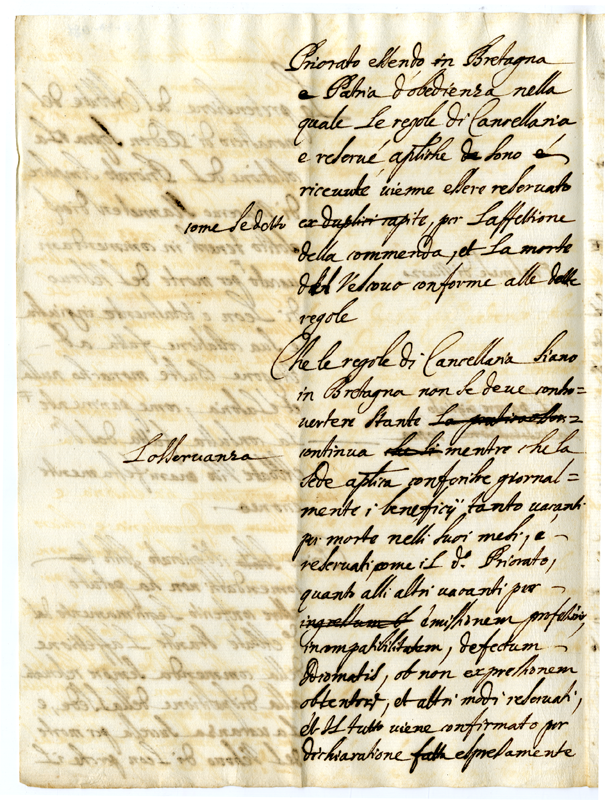 Priorato essendo in Bretagna
e Patria d'obedienza nella
quale Le regole di Cancellaria
e reserve aplische do sono é
riceuute uienne essere reseruato
come Sedetto
ex duplici capite, per L'affettione
della commenda, et La morte
del Vescouo conforme alle dette
regole
Che le regole di Cancellaria siano
in Bretagna non se deue contro=
uertere stante La
L'osseruanza
continua che li mentre che la
sede aplica conferisce giornal=
mente i beneficij tanto uacanti
per morte nelli suoi mesi, e
reseruati come il do. Priorato,
quanto alli altri uacanti per
ingressum et émissionem professionis,
incompatibilitatem, defectum
Idiomatis, ob non expressionem
obtentorum, et altri modi reseruati,
et Il tutto viene confirmato per
dichiaratione fatta espresamente